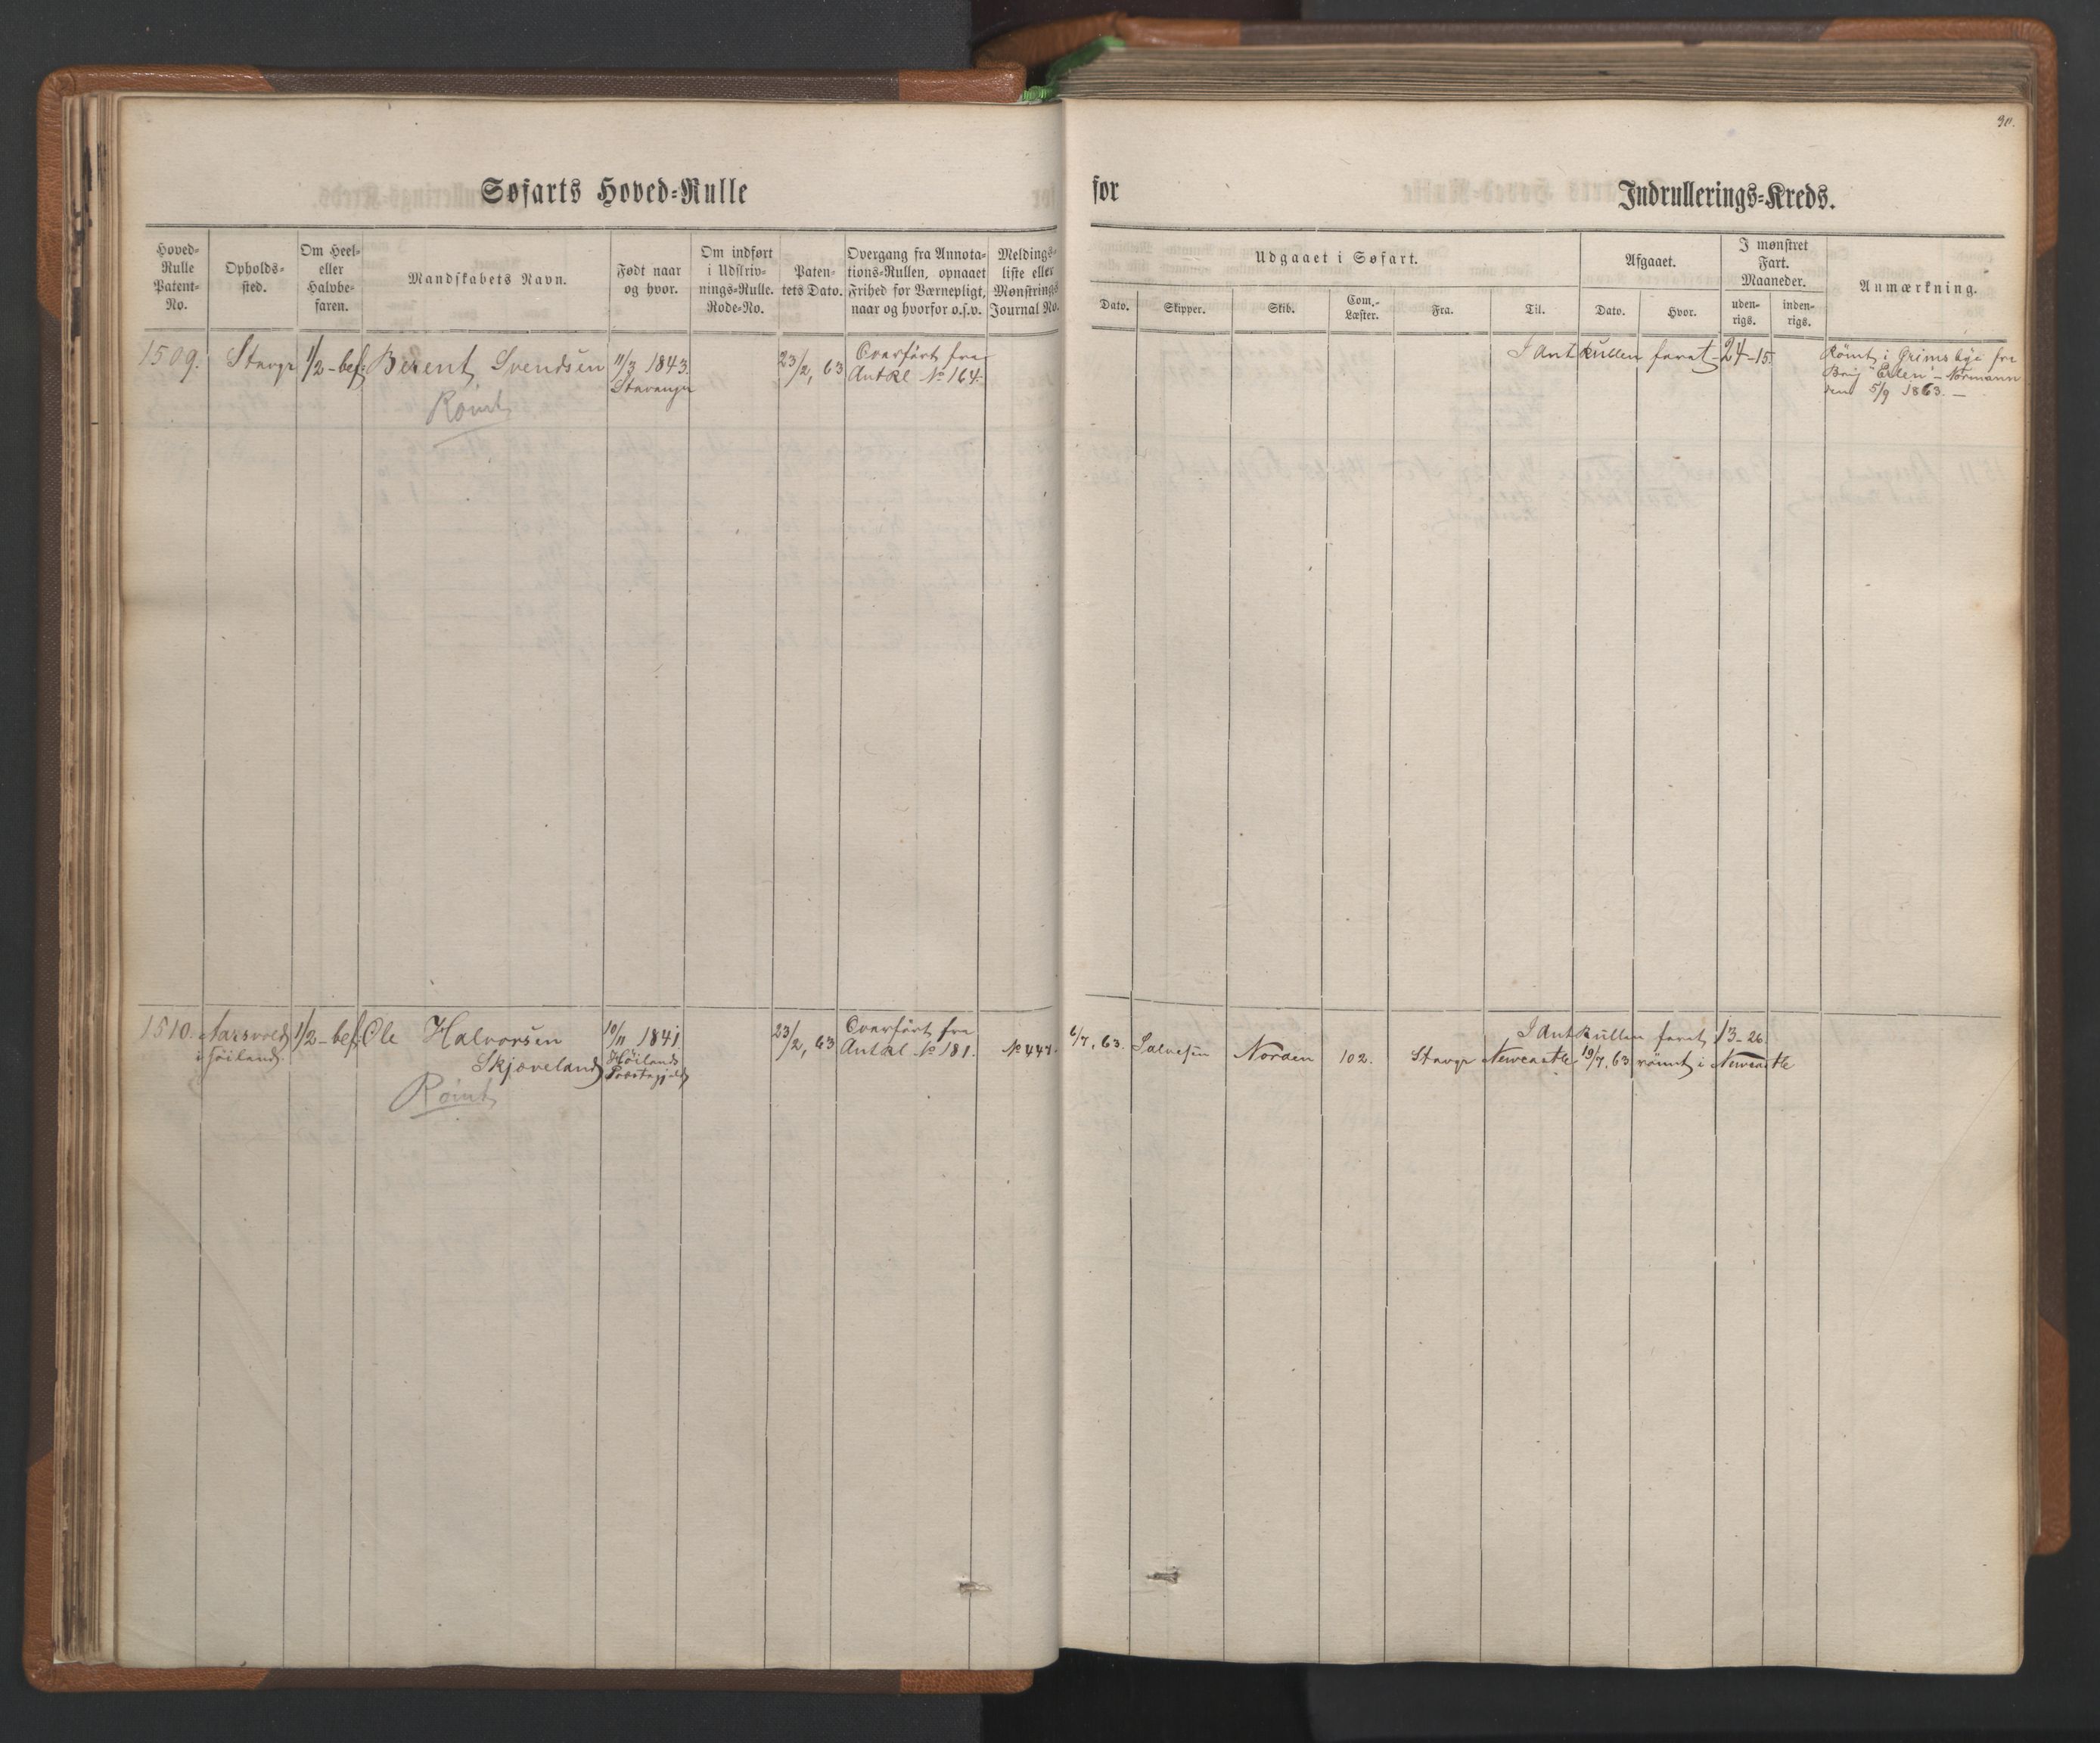 30.
Søfarts Hoved-Rulle
for
Indrullerings-Kreds.
Hoved-Rulle Patent-No.
Opholds-sted.
Om Heel- eller Halvbe-faren.
Mandskabets Navn.
Født naar og hvor.
Om indført i Udskriv-nings-Rulle. Rode-No.
Paten-tets Dato.
Overgang fra Annota-tions-Rullen, opnaaet Frihed for Værnepligt, naar og hvorfor o.s.v.
Meldings-liste eller Mønstrings Journal No.
Udgaaet i Søfart.
Dato.
Skipper.
Skib.
Com.-Læster.
Fra.
Til.
Afgaaet.
Dato.
Hvor.
I mønstret Fart. Maaneder.
uden-rigs.
inden-rigs.
Anmærkning.
1509. Stavgr 1/2-bef: Berent Svendsen 11/3 1843. 23/2, 63 Overført fra
Stavanger AntRl No 164.
Rømt
I AntRullen faret - 24-15. Rømt i Grimsbye fra
Brig "Erlen" - Normann
den 5/9 1863. -
1510. 1/2-bef: Ole Halvorsen 10/11 1841. 23/2, 63 Overført fra
i Høiland Skjæveland Høilands AntRl No 181. No 447.
Præstegjeld
Rømt
I AntRullen faret 13-26.
6/7, 63. Salvesen Norden 102. Stavgr Newcastle 19/7, 63 rømt i Newcastle